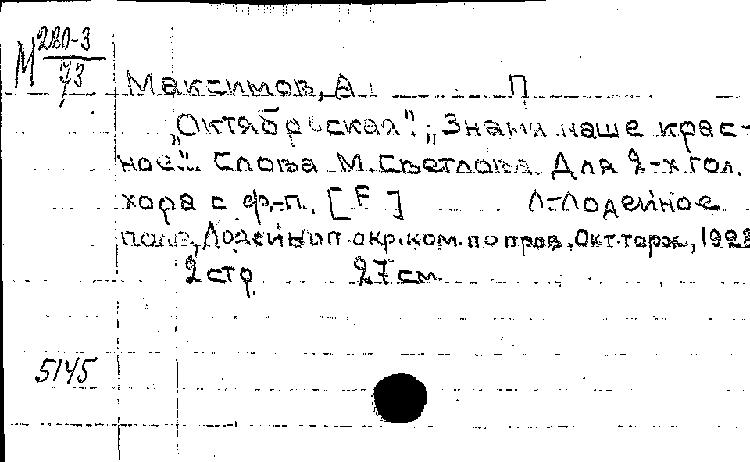 М 280-3
73
Максимов, А. П
„Октябрьская". „Знамя наше крас-
ное".. Слова М. Светлова. Для 2-х гол.
хора с ф.-п. [F] Л-Лодейное
поле, Лодейноп. окр. ком. по пров. Окт. торж., 1928
2 стр. 27 см.
5145